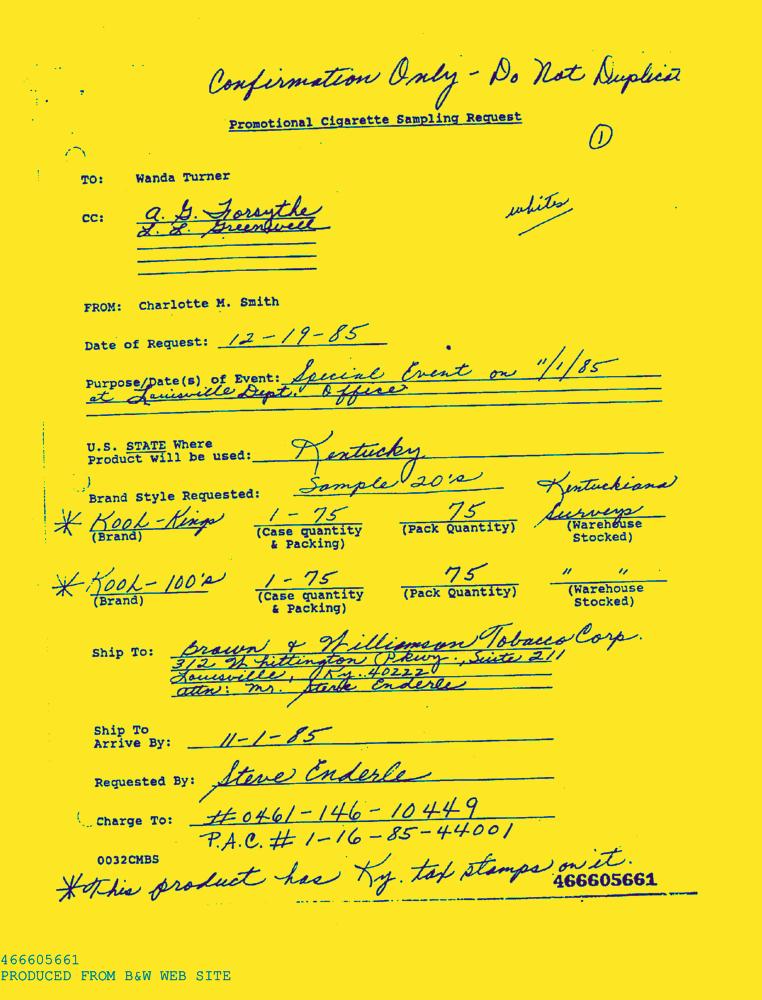 Confirmation Only - Do Not Duplicat
Promotional Cigarette Sampling Request
1
TO: Wanda Turner
whites
CC: A. G. Forsythe
L. L. Greenwell
FROM: Charlotte M. Smith
Date of Request: 12-19-85
Purpose/Date(s) of Event: Special Event on 11/1/85
at Louisville Dept. Office
U.S. STATE Where
Product will be used: Kentucky
Brand Style Requested: Sample 20's Kentuckiana
* KOOL-Kings 1-75 75 Surveys
(Brand) (Case quantity & Packing) (Pack Quantity) (Warehouse Stocked)
* KOOL-100's 1-75 75 " "
(Brand) (Case quantity & Packing) (Pack Quantity) (Warehouse Stocked)
Ship To: Brown & Williamson Tobacco Corp.
312 Whittington Pkwy., Suite 211
Louisville, Ky. 40222
attn: Mr. Steve Enderle
Ship To
Arrive By: 11-1-85
Requested By: Steve Enderle
Charge To: #0461-146-10449
P.A.C. # 1-16-85-44001
0032CMBS
* This product has Ky. tax stamps on it.
466605661
466605661
PRODUCED FROM B&W WEB SITE